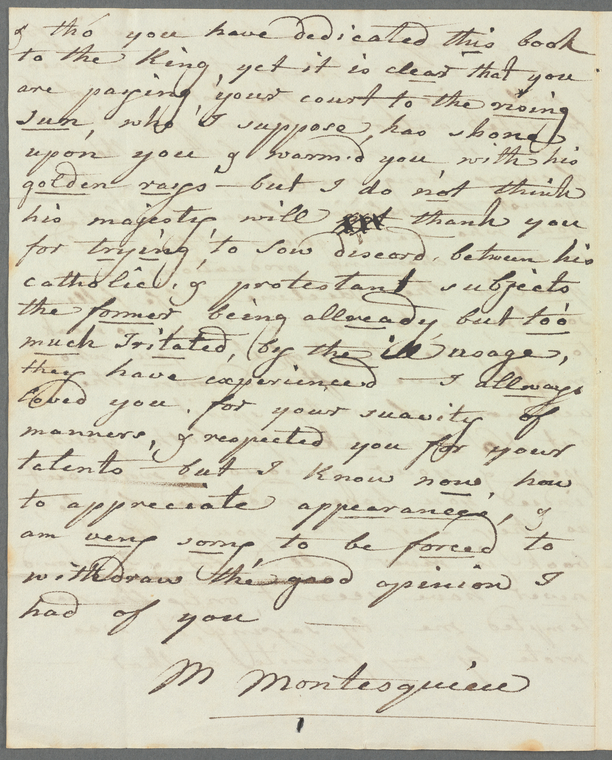 & thó you have dedicated this book
to the King, yet it is clear that you
are paying your court to the rising
sun, who I suppose, has shone
upon you & warmd you with his
golden rays — but I do not think
his majesty will thank you
for trying to sow discord between his
catholic, & protestant subjects
the former being allready but too
much Iritated, by the ill usage,
they have experienced — I allways
loved you for your suavity of
manners, & respected you for your
talents — but I know now, how
to appreciate appearances, &
am very sorry to be forced to
withdraw the good opinion I
had of you —
M Montesquieu